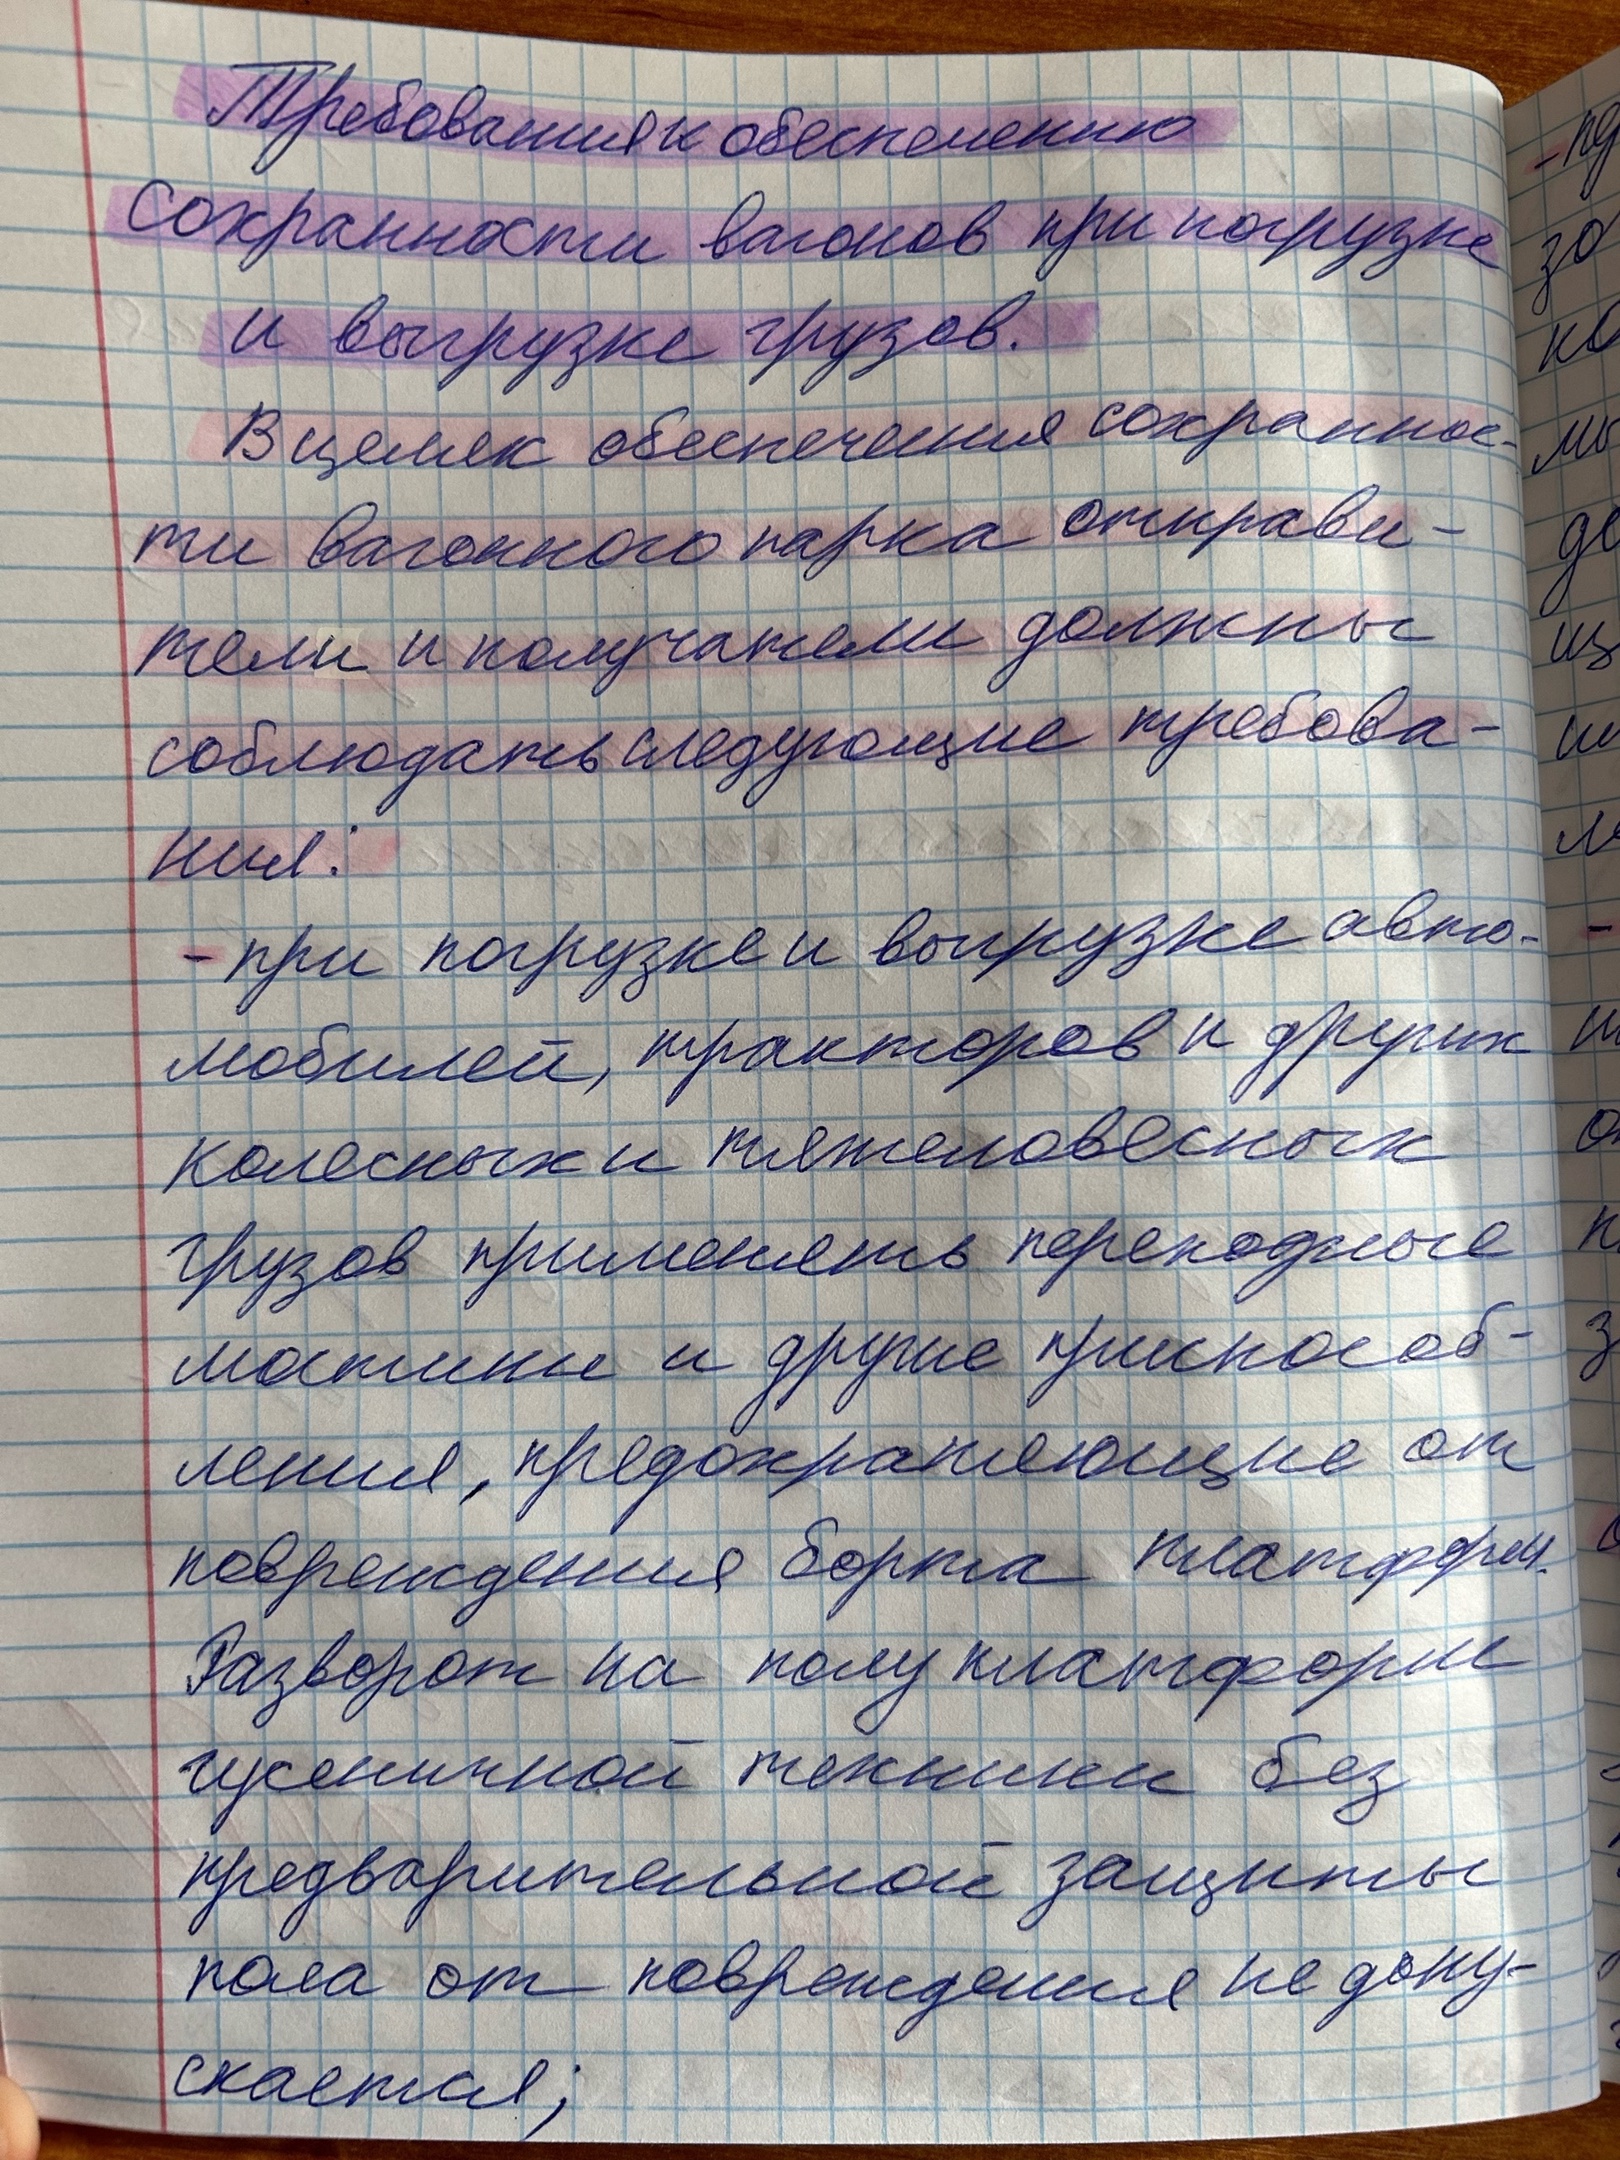 Требования к обеспечению
сохранности вагонов при погрузке
и выгрузке грузов.
В целях обеспечения сохраннос-
ти вагонного парка отправи-
тели и получатели должны
соблюдать следующие требова-
ния:
- при погрузке и выгрузке авто-
мобилей, тракторов и других
колесных и тяжеловесных
грузов применять переходные
мостики и другие приспособ-
ления, предохраняющие от
повреждения борта платформ.
Разворот на полу платформ
гусеничной техники без
предварительной защиты
пола от повреждения не допу-
скается;